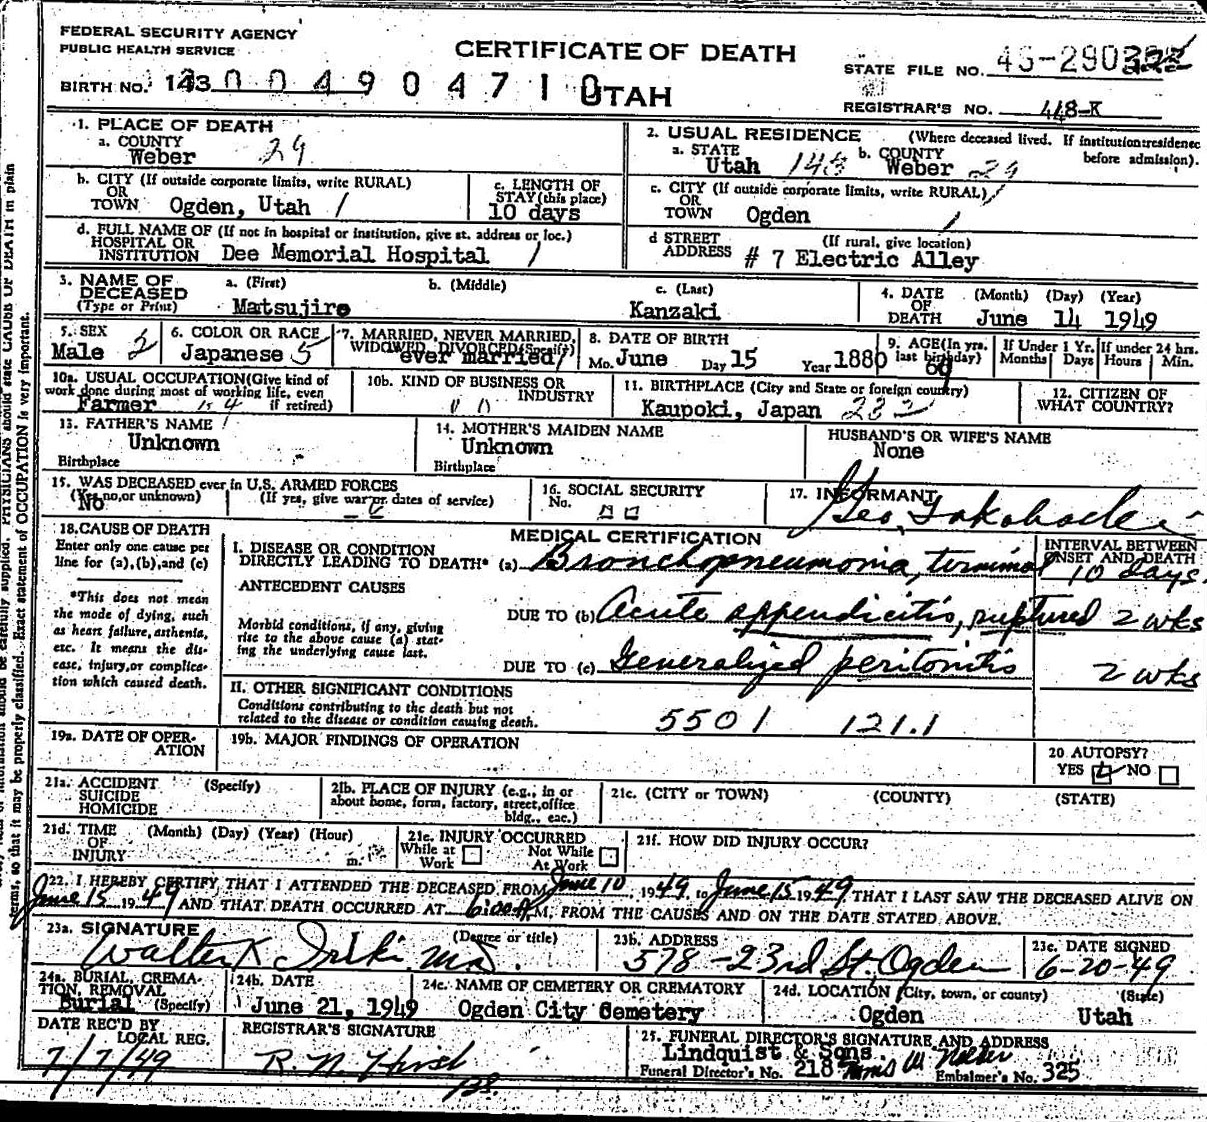 FEDERAL SECURITY AGENCY
PUBLIC HEALTH SERVICE
CERTIFICATE OF DEATH
UTAH
BIRTH NO. 143
0 0 4 9 0 4 7 1 0
STATE FILE NO. 4S-290
REGISTRAR'S NO. 448-K
1. PLACE OF DEATH
a. COUNTY
Weber 29
2. USUAL RESIDENCE (Where deceased lived. If institution:residence before admission).
a. STATE Utah 143 b. COUNTY Weber 29
b. CITY (If outside corporate limits, write RURAL)
OR
TOWN Ogden, Utah 1
c. LENGTH OF
STAY (this place)
10 days
c. CITY (If outside corporate limits, write RURAL)
OR
TOWN Ogden 1
d. FULL NAME OF (If not in hospital or institution, give st. address or loc.)
HOSPITAL OR
INSTITUTION Dee Memorial Hospital 1
d STREET (If rural, give location)
ADDRESS # 7 Electric Alley
3. NAME OF
DECEASED
(Type or Print)
a. (First) b. (Middle) c. (Last)
Matsujire Kanzaki
4. DATE
OF
DEATH
(Month) (Day) (Year)
June 14 1949
5. SEX
Male 2
6. COLOR OR RACE
Japanese 5
7. MARRIED, NEVER MARRIED,
WIDOWED, DIVORCED (Specify)
ever married
8. DATE OF BIRTH
Mo. June Day 15 Year 1880
9. AGE (In yrs.
last birthday)
If Under 1 Yr.
Months Days
If under 24 hrs.
Hours Min.
10a. USUAL OCCUPATION (Give kind of
work done during most of working life, even
if retired)
Farmer
10b. KIND OF BUSINESS OR
INDUSTRY
11. BIRTHPLACE (City and State or foreign country)
Kaupoki, Japan
12. CITIZEN OF
WHAT COUNTRY?
13. FATHER'S NAME
Unknown
Birthplace
14. MOTHER'S MAIDEN NAME
Unknown
Birthplace
HUSBAND'S OR WIFE'S NAME
None
15. WAS DECEASED ever in U.S. ARMED FORCES
(Yes, no, or unknown) (If yes, give war or dates of service)
No
16. SOCIAL SECURITY
No.
17. INFORMANT
Geo.
18. CAUSE OF DEATH
Enter only one cause per
line for (a), (b), and (c)
*This does not mean
the mode of dying, such
as heart failure, asthenia,
etc. It means the dis-
ease, injury, or complica-
tion which caused death.
MEDICAL CERTIFICATION
INTERVAL BETWEEN
ONSET AND DEATH
I. DISEASE OR CONDITION
DIRECTLY LEADING TO DEATH* (a) Bronchopneumonia, terminal 10 days
ANTECEDENT CAUSES
Morbid conditions, if any, giving
rise to the above cause (a) stat-
ing the underlying cause last.
DUE TO (b) Acute appendicitis, ruptured 2 wks
DUE TO (c) Generalized peritonitis 2 wks
II. OTHER SIGNIFICANT CONDITIONS
Conditions contributing to the death but not
related to the disease or condition causing death.
5501 121.1
19a. DATE OF OPER-
ATION
19b. MAJOR FINDINGS OF OPERATION
20 AUTOPSY?
YES NO
21a. ACCIDENT (Specify)
SUICIDE
HOMICIDE
21b. PLACE OF INJURY (e.g., in or
about home, form, factory, street, office
bldg., eac.)
21c. (CITY or TOWN) (COUNTY) (STATE)
21d. TIME (Month) (Day) (Year) (Hour)
OF
INJURY m.
21e. INJURY OCCURRED
While at Work Not While At Work
21f. HOW DID INJURY OCCUR?
22. I HEREBY CERTIFY THAT I ATTENDED THE DECEASED FROM June 10 1949 to June 15 1949 THAT I LAST SAW THE DECEASED ALIVE ON
June 15 1949 AND THAT DEATH OCCURRED AT 6:00 A.M, FROM THE CAUSES AND ON THE DATE STATED ABOVE.
23a. SIGNATURE (Degree or title)
Walter K M.D.
23b. ADDRESS
578 - 23rd St. Ogden
23c. DATE SIGNED
6-20-49
24a. BURIAL, CREMA-
TION, REMOVAL
Burial (Specify)
24b. DATE
June 21, 1949
24c. NAME OF CEMETERY OR CREMATORY
Ogden City Cemetery
24d. LOCATION (City, town, or county) (State)
Ogden Utah
DATE REC'D BY
LOCAL REG.
7/7/49
REGISTRAR'S SIGNATURE
R. N. Hirst
25. FUNERAL DIRECTOR'S SIGNATURE AND ADDRESS
Lindquist & Sons
Funeral Director's No. 218 Embalmer's No. 325
terms, so that it may be properly classified. Exact statement of OCCUPATION is very important.
be carefully supplied. PHYSICIANS should state CAUSE OF DEATH in plain